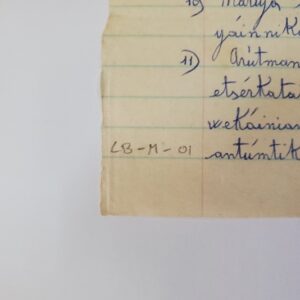 10) Maruja
yáinnik
11) Arútman
etsérkata
wekáinian
LB-M-01 antúmtik